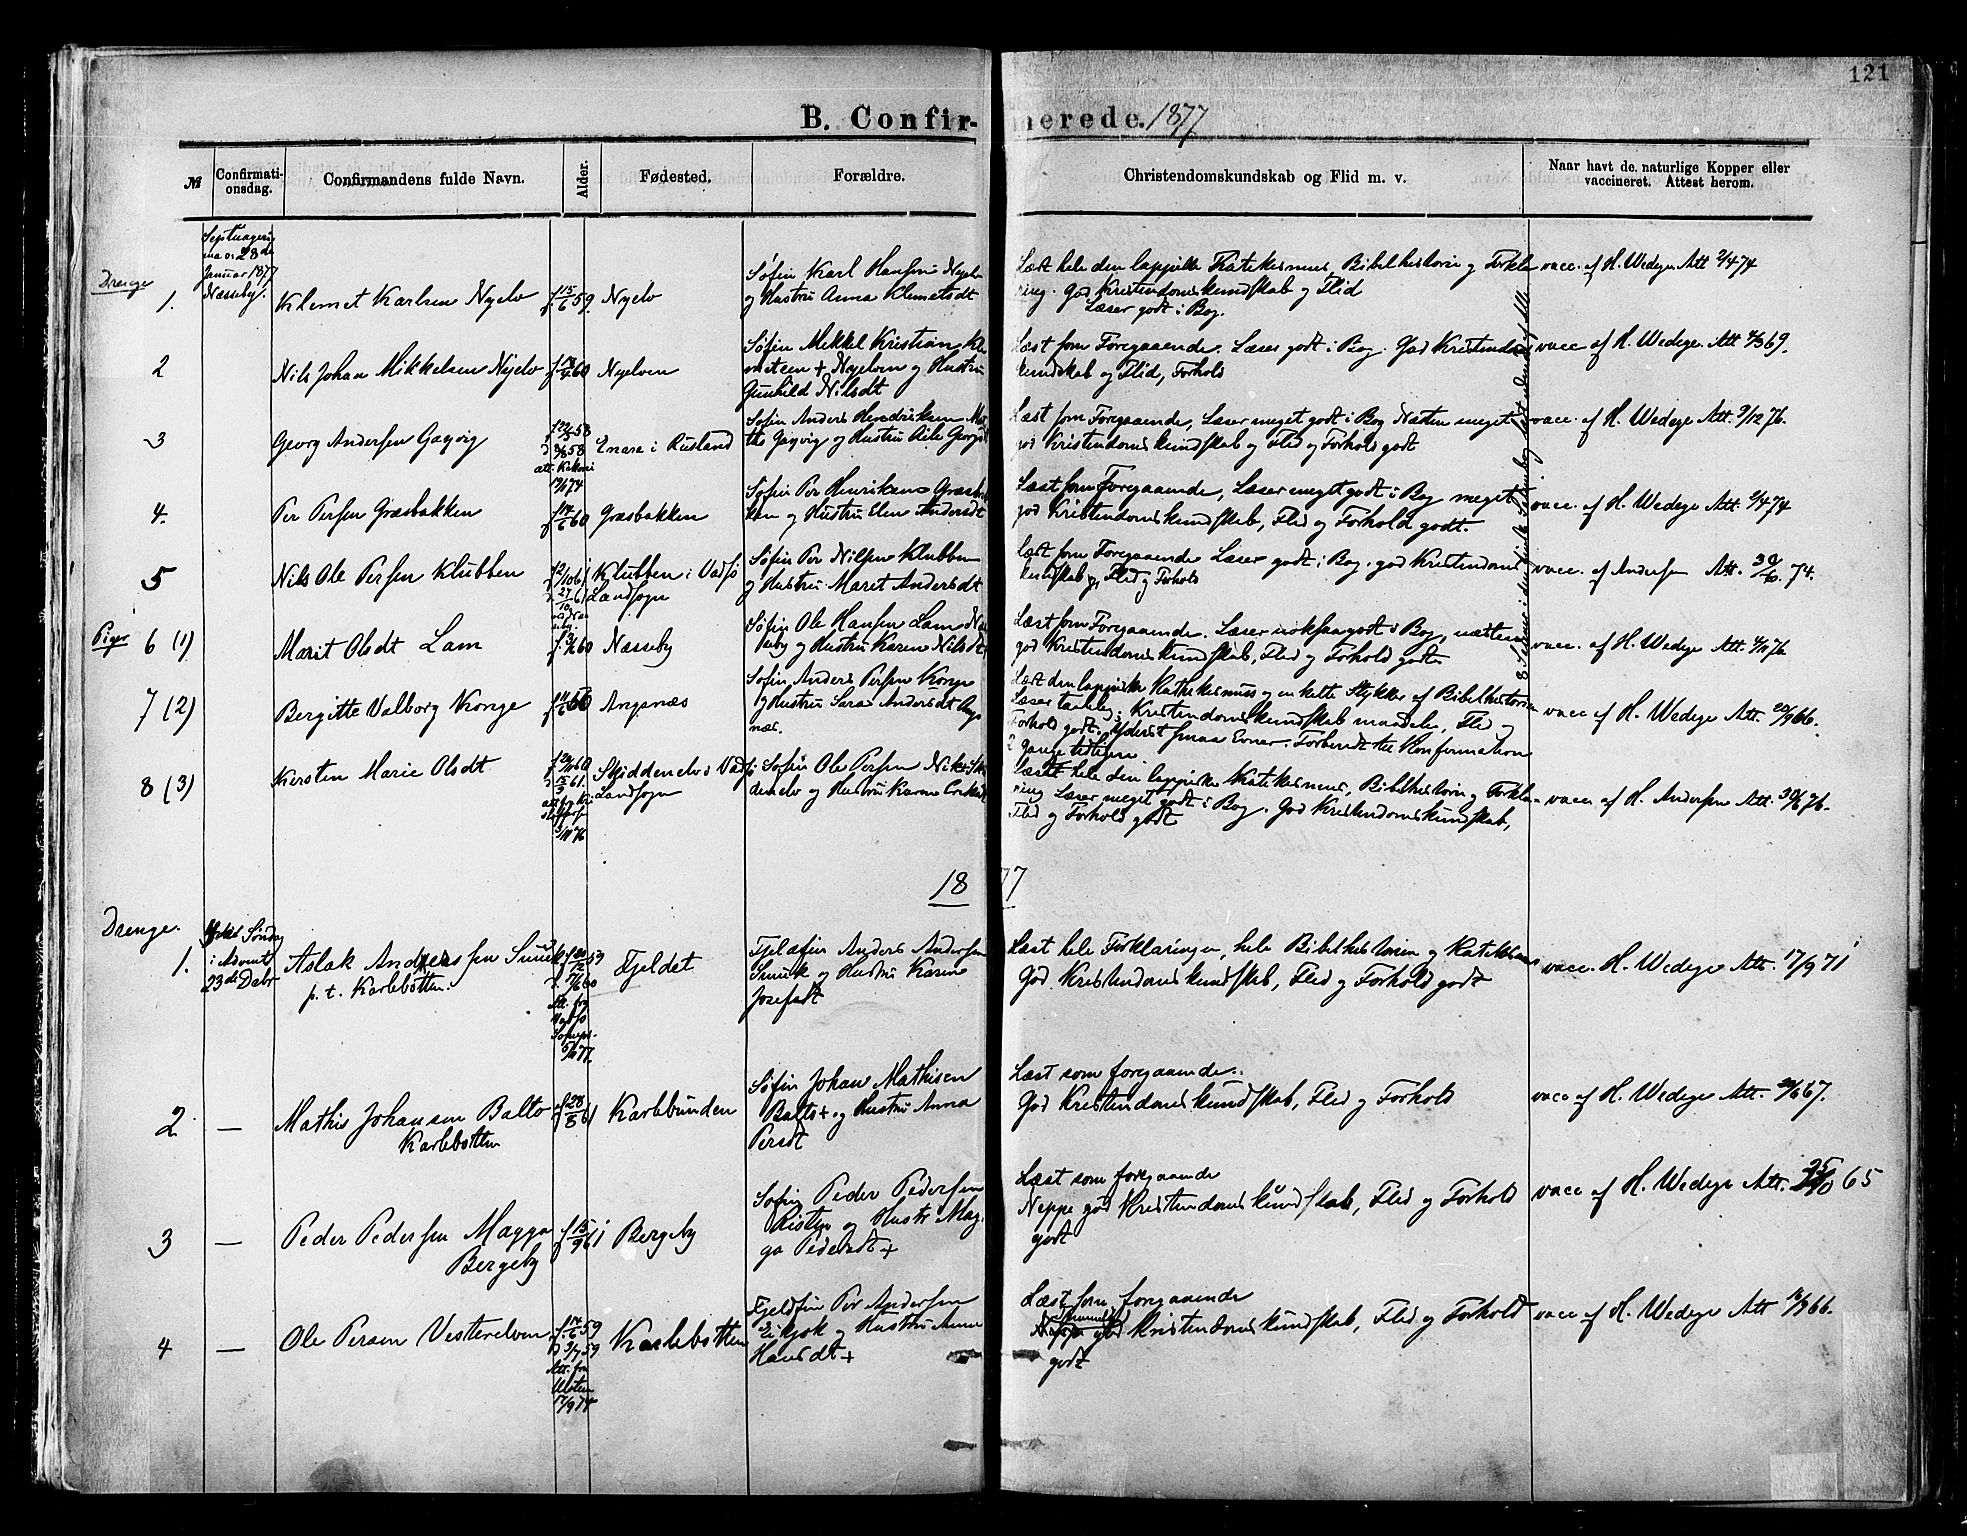 121
B. Confirmerede. 1877
№
Confirmationsdag.
Confirmandens fulde Navn.
Alder.
Fødested.
Forældre.
Christendomskundskab og Flid m. v.
Naar havt de naturlige Kopper eller vaccineret. Attest herom.
Drenge
1.
28de
Januar 1877
Næsseby.
Klemet Karlsen Nyelv
f. 15/6 59.
Nyelv
Søfin Karl Hansen Nyelv
og Hustru Anna Klemetsdt
Læst hele den lappiske Katekesmus, Bibelhistorie og Forkla
ring. God Kristendomskundskab og Flid
Læser godt i Bog.
vacc. af H. Wedege Att 2/4 74
2
Nils Johan Mikkelsen Nyelv
Nyelven
Søfin Mekkel Kristian Kle
metsen + Nyelven og Hustru
Gunhild Nilsdt
Læst som Foregaaende. Læser godt i Bog. God Kristendoms
kundskab og Flid, Forhold
vacc af H. Wedege. Att 69.
3
Georg Andersen Gagvig
Enare i Rusland
Søfin Anders Hendriksen
Gagvig og Hustru
Læst som Foregaaende, Læser meget godt i Bog Næsten meget
god Kristendomskundskab og Flid og Forhold godt
vacc. af H. Wedege Att. 9/12 76.
4.
Per Persen Græsbakken
f 60
Græsbakken
Søfin Per Henriksen Græsbak
ken og Hustru Elen Andersdt
Læst som Foregaaende, Læser meget godt i Bog meget
god Kristendomskundskab, Flid og Forhold godt.
vacc. af H. Wedege Att. 2/4 74
5
Nils Ole Persen Klubben
Klubben i Vadsø
Landsogn
Søfin Per Nilsen Klubben
og Hustru Marit Andersdt
Læst som Foregaaende Læser godt i Bog. god Kristendoms
kundskab og Flid og Forhold
vacc. af Andersen Att. 30/10. 74.
Piger 6 (1)
Marit Olsdt Lam
Næsseby
Søfin Ole Hansen Lam Næs
seby og Hustru Karen Nilsdt
Læst som Foregaaende. Læser nokssaagodt i Bog, næsten
god Kristendomskundskab, Flid og Forhold godt.
vacc. af H. Wedege Att. 76
7 (2)
Bergitte Valborg Konge
f 11/6 60
Angsnæs
Søfin Anders Persen Konge
og Hustru Sara Andersdt Angs
næs.
Læst den lappiske Kathekesmus og enkelte Stykker af Bibelhistorien
Læser taalelig; Kristendomskundskab maadelig, Flid og
Forhold godt. Yderst smaa Evner. Forberedt til Konfirmation
2 gange tidligere
vacc af H. Wedege Att. 20/9 66.
8 (3)
Kirsten Marie Olsdt
Skiddenelv i Vadsø
Landsogn
Søfin Ole Persen
denelv og Hustru Karen
Læst hele den lappiske Katekesmus, Bibelhistorie og Forkla-
ring Læser meget godt i Bog. God Kristendomskundskab,
Flid og Forhold godt
vacc. af H. Andersen Att. 30/6 76.
1877
Drenge.
1.
Søndag
i Advent
23de Debr
Aslak Andersen Smuk
p. t. Karlebotten.
Fjeldet
Fjeldfin Anders Andersen
Smuk og Hustru Karen
Josefsdt
Læst hele Forklaringen, hele Bibelhistorien og Katekesmus
God Kristendomskundskab, Flid og Forhold godt
vacc. H. Wedege Att. 17/9 71
2
—
Mathis Johansen Balto
Karlebotten
f 28/5 61
Karlebunden
Søfin Johan Mathisen
Balto + og Hustru Anna
Persdt
Læst som foregaaende.
God Kristendomskundskab, Flid og Forhold
vacc af H. Wedege Att. 67.
3
—
Peder Pedersen Magga
Bergeby
f 15/9 61
Bergeby
Søfin Peder Pedersen
og Hustr Mag
ga Pedersdt +
Læst som foregaaende
Neppe god Kristendomskundskab, Flid og Forhold
godt
vacc af H. Wedege Att. 25/10 65
4
—
Ole Persen Vesterelven
f. 14/6 59
d 3/7 59
Att. fra
Karlebotten
Fjeldfin Per Andersen
og Hustru Anna
Hansdt +
Læst som foregaaende
god Kristendomskundskab, Flid og Forhold
godt
vacc af H. Wedege Att 66.